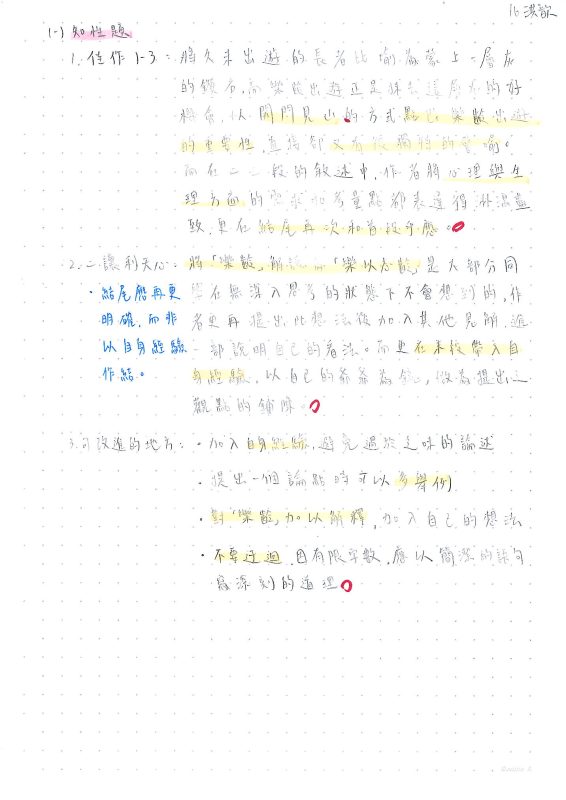 16 洪歆
(一) 知性題
1. 佳作 1-3: 將久未出遊的長者比喻為蒙上一層灰
的鑽石, 而樂齡出遊正是抹去這層灰的好
機會, 以開門見山的方式點出樂齡出遊
的重要性, 直接卻又有很獨特的譬喻。
而在二、三段的敘述中, 作者將心理與生
理方面的需求和考量點都表達得淋漓盡
致, 更在結尾再次和首段呼應。
2. 二讓利天心: 將「樂齡」解讀而「樂以忘齡」是大部分同
・結尾應再更
學在無深入思考的狀態下不會想到的, 作
明確, 而非
者更再提出此想法後加入其他見解, 進
以自身經驗
一部說明自己的看法。而更在末段帶入自
作結。
身經驗, 以自己的爺爺為例, 做為提出
觀點的鋪陳。
3. 可改進的地方: ・加入自身經驗, 避免過於乏味的論述
・提出一個論點時可以多舉例
・對「樂齡」加以解釋, 加入自己的想法
・不要迂迴, 因有限字數, 應以簡潔的語句
寫深刻的道理